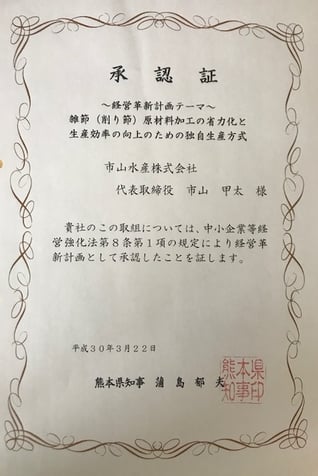 承認証
～経営革新計画テーマ～
雑節（削り節）原材料加工の省力化と
生産効率の向上のための独自生産方式
市山水産株式会社
代表取締役 市山 甲太 様
貴社のこの取組については、中小企業等経
営強化法第８条第１項の規定により経営革
新計画として承認したことを証します。
平成３０年３月２２日
熊本県知事 蒲島郁夫
熊本県
知事印